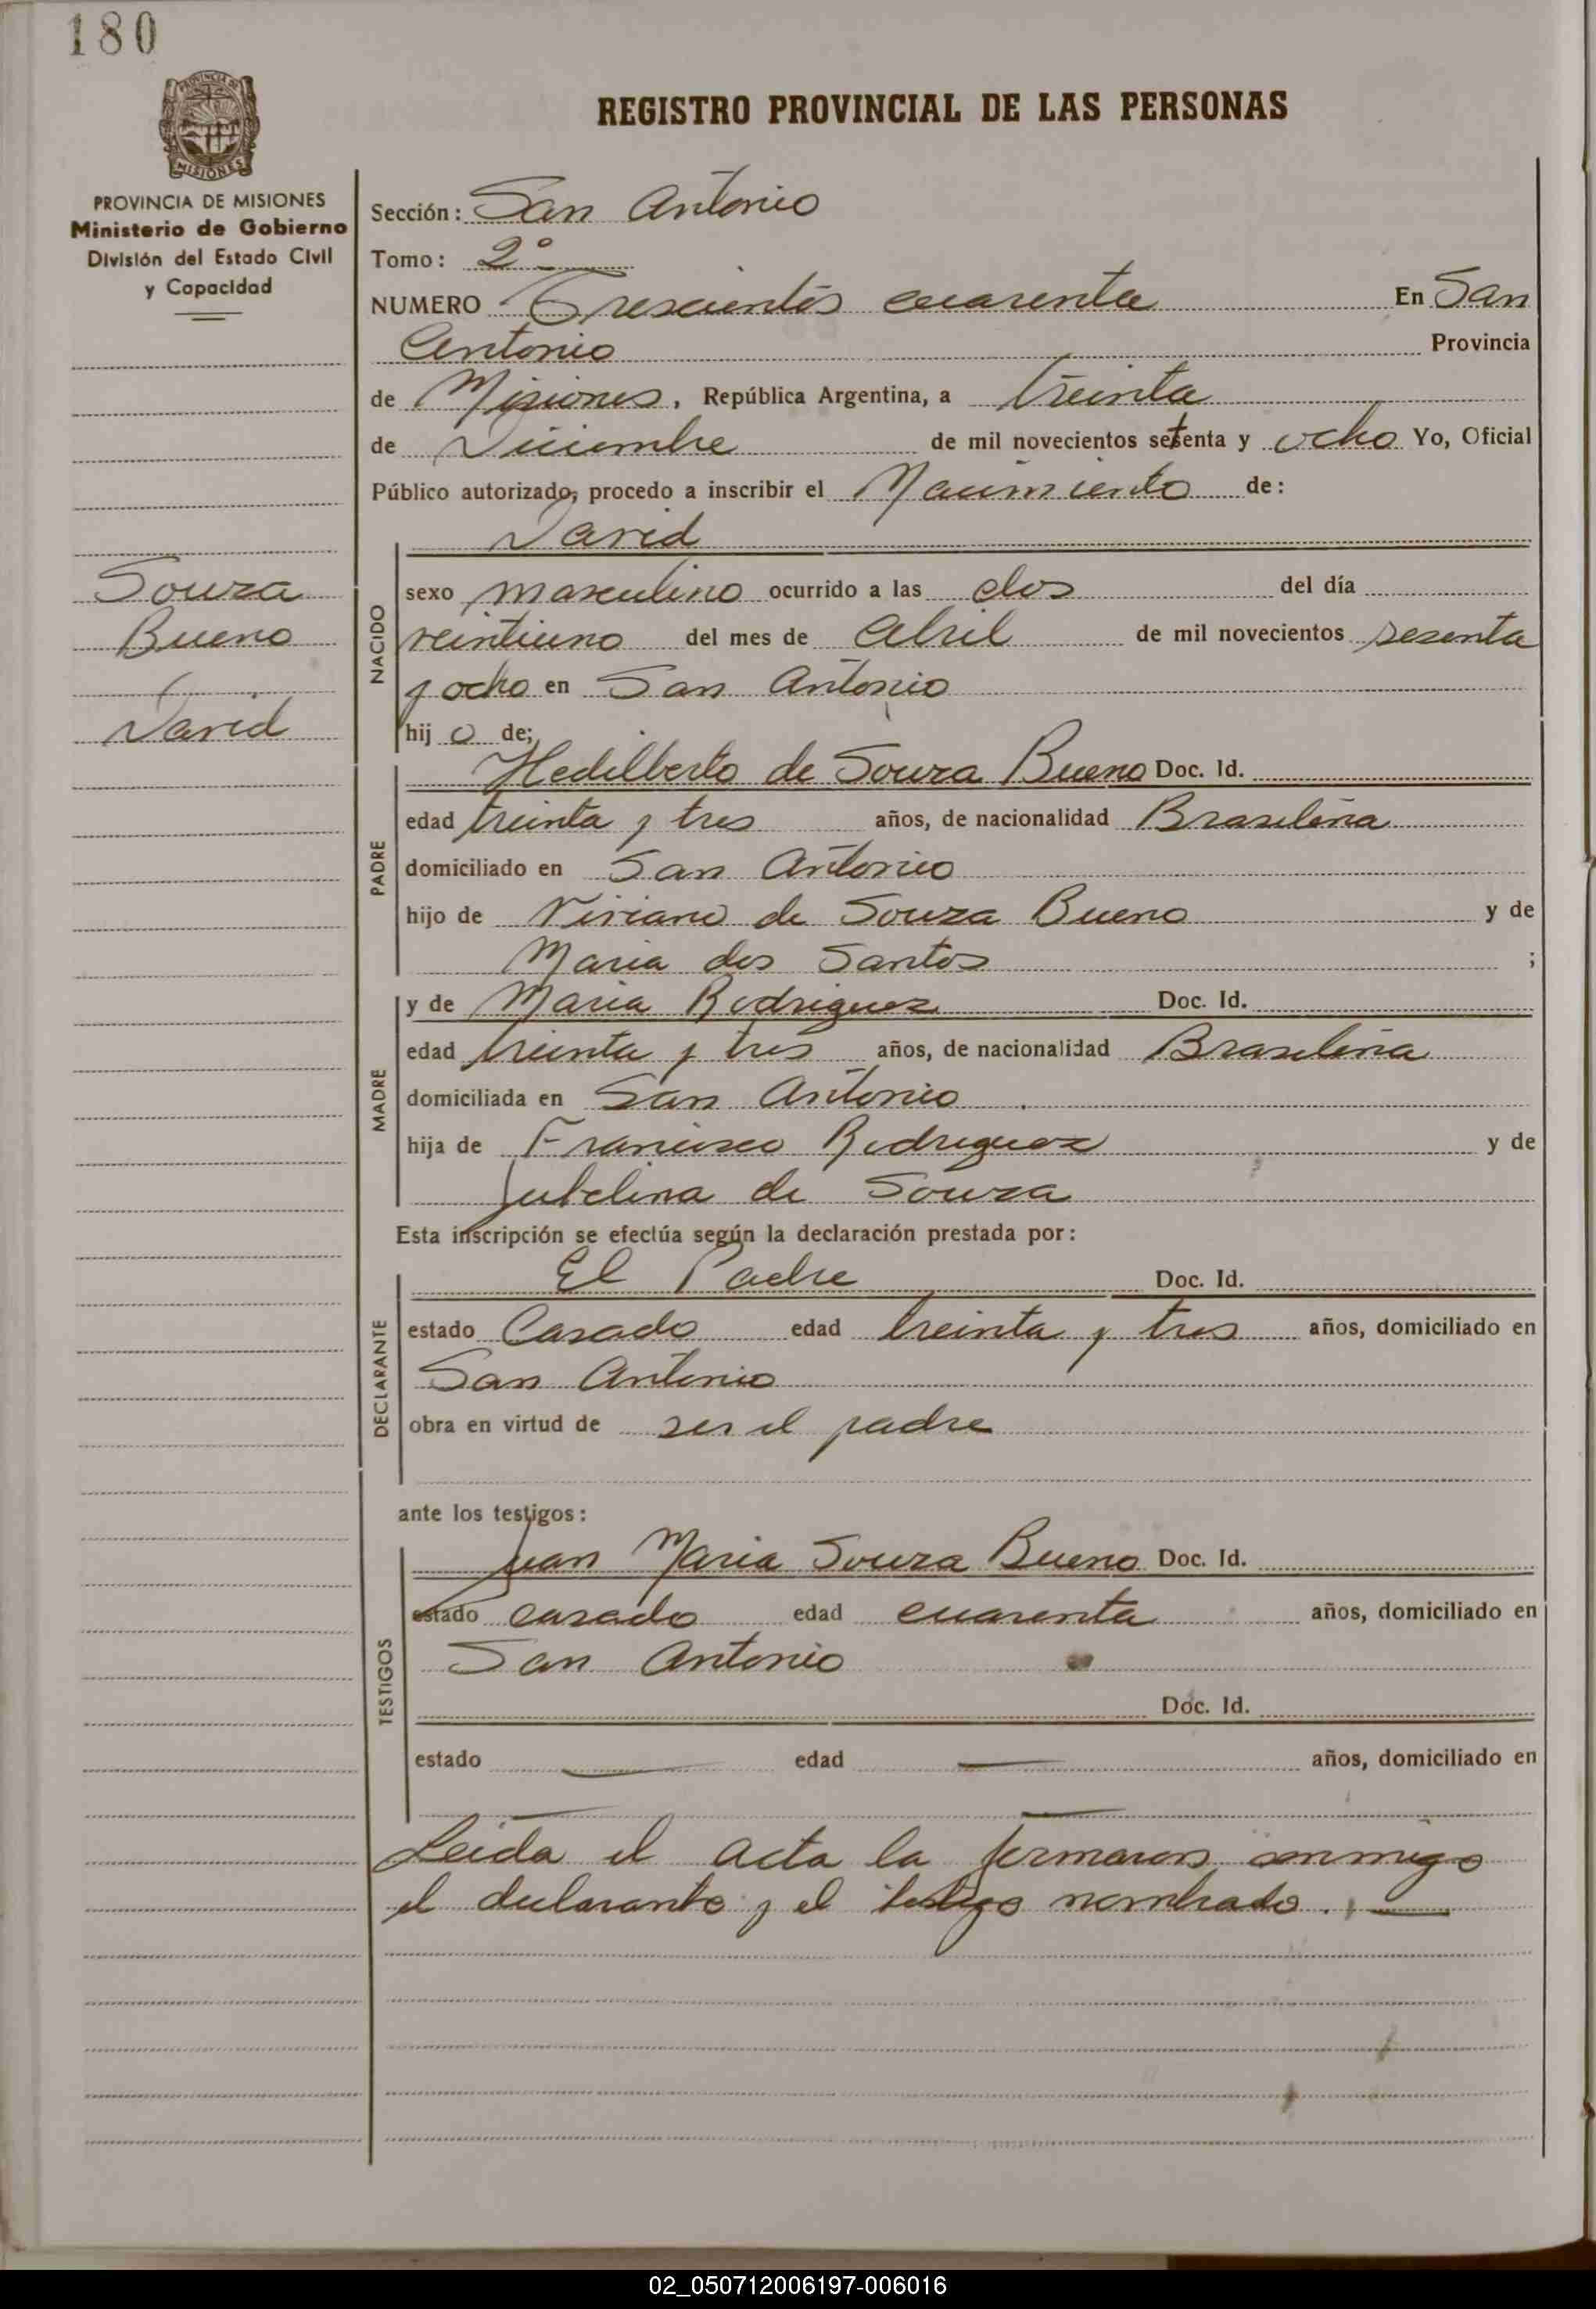 180
PROVINCIA DE
MISIONES
PROVINCIA DE MISIONES
Ministerio de Gobierno
División del Estado Civil
y Capacidad
Souza
Bueno
David
REGISTRO PROVINCIAL DE LAS PERSONAS
Sección: San Antonio
Tomo: 2º
NUMERO Trescientos cuarenta En San
Antonio Provincia
de Misiones, República Argentina, a treinta
de Diciembre de mil novecientos setenta y ocho Yo, Oficial
Público autorizado, procedo a inscribir el Nacimiento de:
David
NACIDO
sexo masculino ocurrido a las dos del día
veintiuno del mes de Abril de mil novecientos sesenta
y ocho en San Antonio
hij o de;
PADRE
Hedilberto de Souza Bueno Doc. Id.
edad treinta y tres años, de nacionalidad Brasileña
domiciliado en San Antonio
hijo de Viviano de Souza Bueno y de
Maria dos Santos ;
MADRE
y de Maria Rodriguez Doc. Id.
edad treinta y tres años, de nacionalidad Brasileña
domiciliada en San Antonio
hija de Francisco Rodriguez y de
de Souza
Esta inscripción se efectúa según la declaración prestada por:
DECLARANTE
El Padre Doc. Id.
estado Casado edad treinta y tres años, domiciliado en
San Antonio
obra en virtud de ser el padre
ante los testigos:
TESTIGOS
Juan Maria Souza Bueno Doc. Id.
estado casado edad cuarenta años, domiciliado en
San Antonio
Doc. Id.
estado — edad — años, domiciliado en
Leida el acta la firmaron conmigo
el declarante y el testigo nombrado. —
02_050712006197-006016